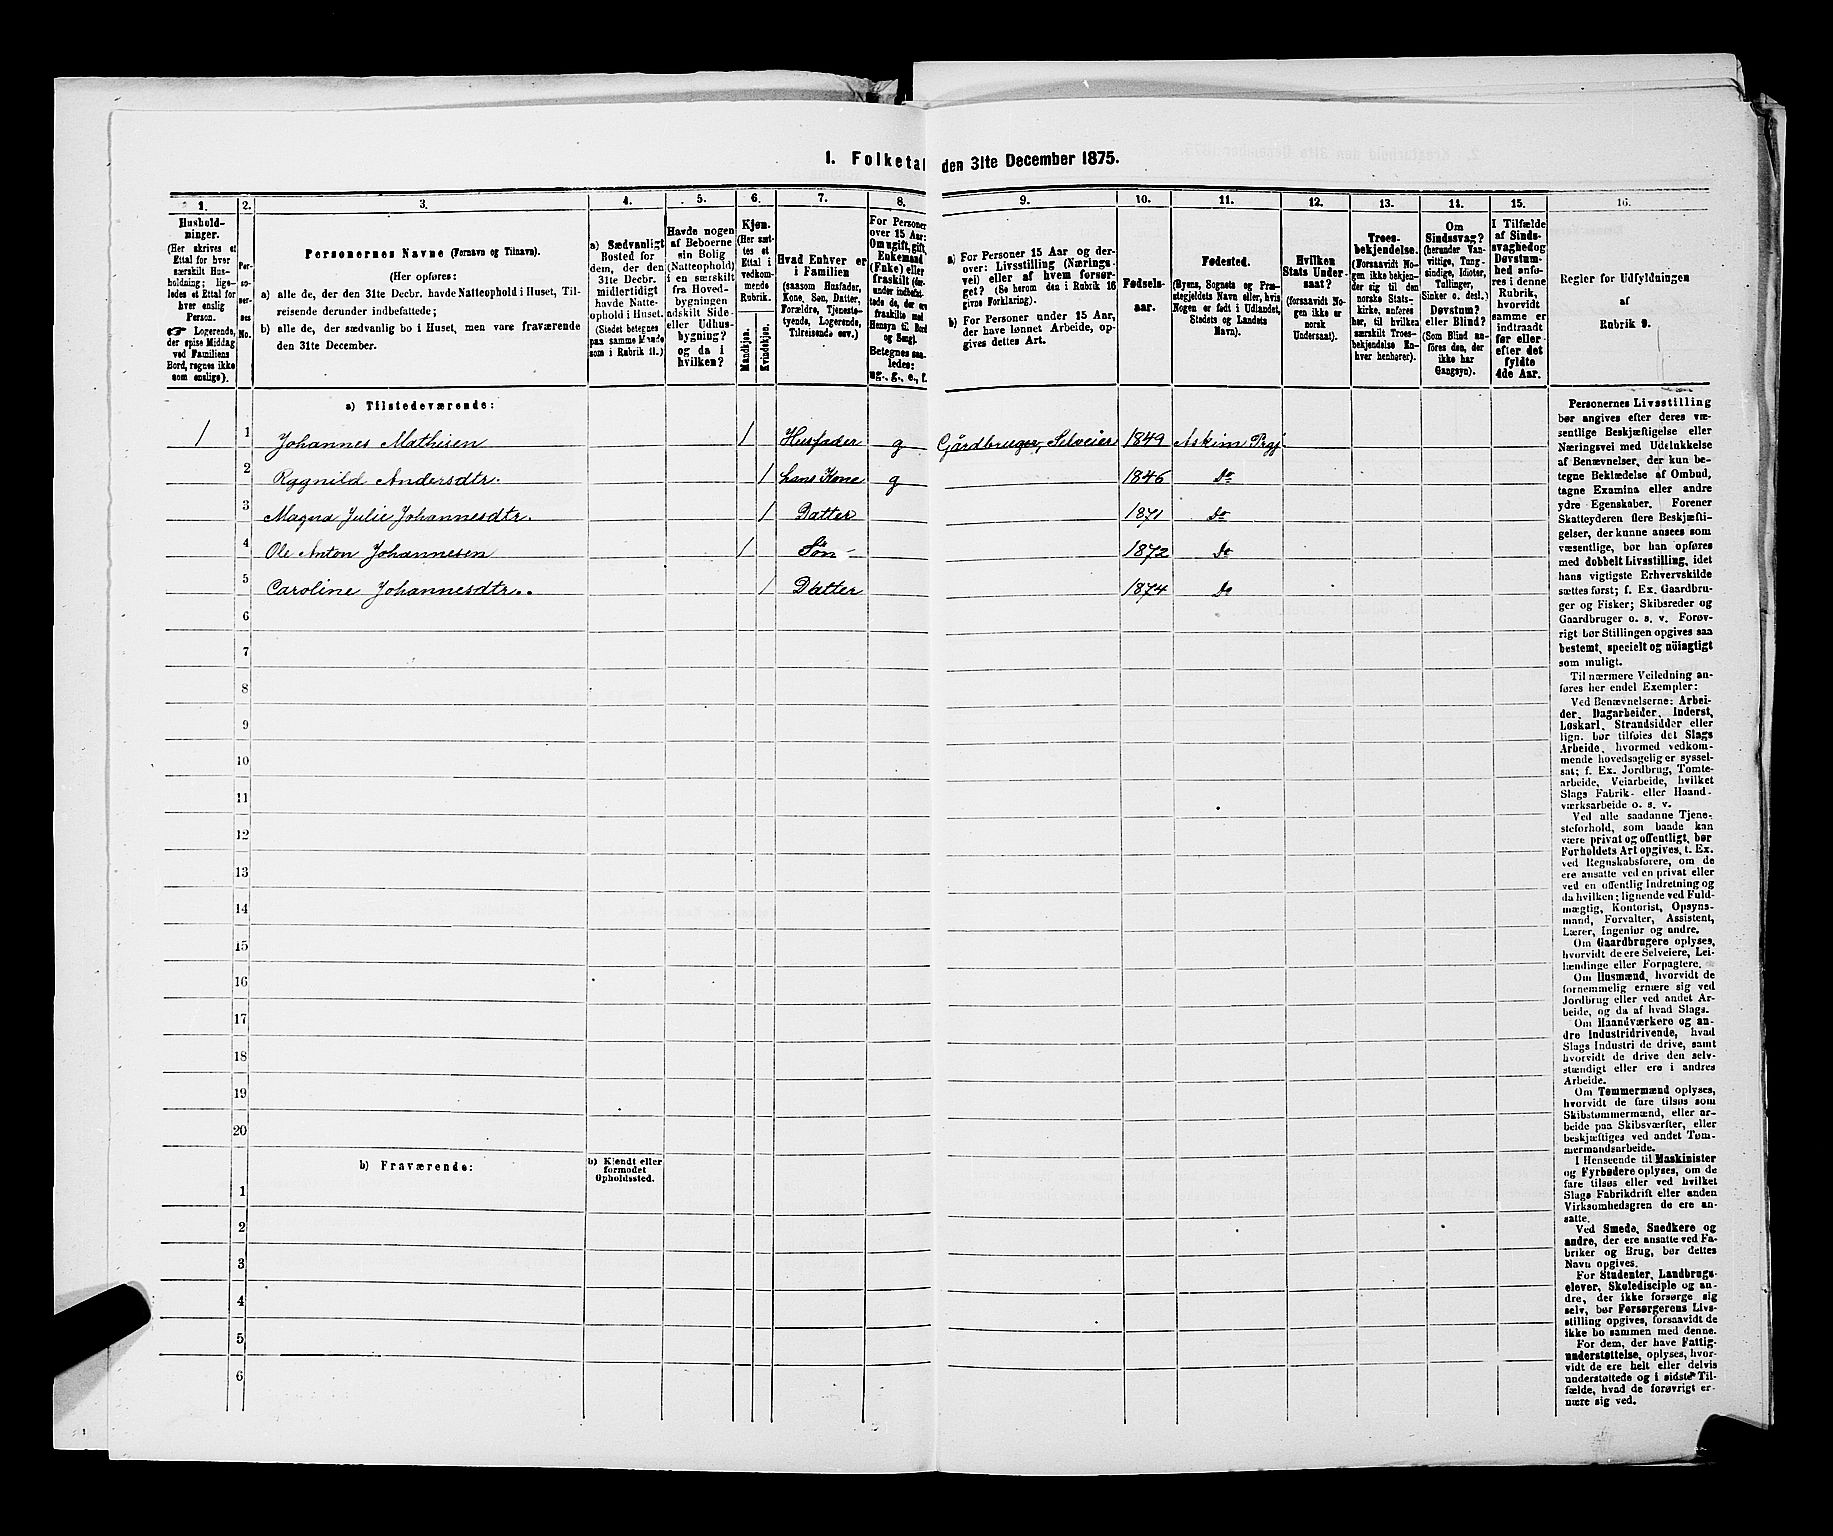 1. Folketal den 31te December 1875.
1. 2. 3. 4. 5. 6. 7. 8. 9. 10. 11. 12. 13. 14. 15. 16.
Husholdninger.
(Her skrives et
Ettal for hver
særskilt Husholdning;
ligeledes et Ettal for
hver enslig
Person.
☛ Logerende,
der spise Middag
ved Familiens
Bord, regnes ikke
som enslige).
Personernes No.
Personernes Navne (Fornavn og Tilnavn).
(Her opføres:
a) alle de, der den 31te Decbr. havde Natteophold i Huset, Tilreisende
derunder indbefattede;
b) alle de, der sædvanlig bo i Huset, men vare fraværende
den 31te December.
a) Sædvanligt
Bosted for
dem, der den
31te Decbr.
midlertidigt
havde Natteophold
i Huset.
(Stedet betegnes
paa samme Maade
som i Rubrik 11.)
Havde nogen
af Beboerne
sin Bolig
(Natteophold)
i en særskilt
fra Hovedbygningen
adskilt Side-
eller Udhusbygning?
og da i
hvilken?
Kjøn.
(Her sættes
et
Ettal i
vedkommende
Rubrik.
Mandkjøn. Kvindekjøn.
Hvad Enhver er
i Familien
(saasom Husfader,
Kone, Søn, Datter,
Forældre, Tjenestetyende,
Logerende,
Tilreisende osv.)
For Personer
over 15 Aar:
Om ugift, gift,
Enkemand
(Enke) eller
fraskilt
Betegnes saaledes:
ug., g., e., f.
a) For Personer 15 Aar og derover:
Livsstilling (Næringsvei)
eller af hvem forsørget?
(Se herom den i Rubrik 16
givne Forklaring).
b) For Personer under 15 Aar,
der have lønnet Arbeide, opgives
dettes Art.
Fødselsaar.
Fødested.
(Byens, Sognets og Præstegjeldets
Navn eller, hvis
Nogen er født i Udlandet,
Stedets og Landets
Navn).
Hvilken
Stats Undersaat?
(forsaavidt Nogen
ikke er
norsk
Undersaat).
Troesbekjendelse.
(Forsaavidt Nogen
ikke bekjender
sig til den
norske Statskirke,
anføres
her, til hvilken
særskilt Troesbekjendelse
Enhver
henhører).
Om
Sindssvag?
(herunder Vanvittige,
Tungsindige,
Idioter,
Tullinger,
Sinker o. desl.)
Døvstum?
eller Blind?
(Som Blind anføres
den, der
ikke har
Gangsyn).
I Tilfælde
af Sindssvaghed
og
Døvstumhed
anføres
i denne
Rubrik,
hvorvidt
samme er
indtraadt
før eller
efter det
fyldte
4de Aar.
Regler for Udfyldningen
af
Rubrik 9.
a) Tilstedeværende:
1 1 Johannes Mathisen 1 Husfader g Gårdbruger, Selveier 1849 Askim Prgj.
2 Ragnild Andersdtr. 1 hans Kone g 1846 Do
3 Magna Julie Johannesdtr. 1 Datter 1871 Do
4 Ole Anton Johannesen 1 Søn 1872 Do
5 Caroline Johannesdtr. 1 Datter 1874 Do
6
7
8
9
10
11
12
13
14
15
16
17
18
19
20
b) Fraværende:
b) Kjendt eller
formodet
Opholdssted.
1
2
3
4
5
6
Personernes Livsstilling
bør angives efter deres væsentlige
Beskjæftigelse eller
Næringsvei med Udelukkelse
af Benævnelser, der kun betegne
Beklædelse af Ombud,
tagne Examina eller andre
ydre Egenskaber. Forener
Skatteyderen flere Beskjæftigelser,
der kunne ansees som
væsentlige, bør han opføres
med dobbelt Livsstilling, idet
hans vigtigste Erhvervskilde
sættes først; f. Ex. Gaardbruger
og Fisker; Skibsreder og
Gaardbruger o. s. v. Forøvrigt
bør Stillingen opgives saa
bestemt, specielt og nöiagtigt
som muligt.
Til nærmere Veiledning anføres
her endel Exempler:
Ved Benævnelserne: Arbeider,
Dagarbeider, Inderst,
Løskarl, Strandsidder eller
lign. bør tilføies det Slags
Arbeide, hvormed vedkommende
hovedsagelig er sysselsat;
f. Ex. Jordbrug, Tomtearbeide,
Veiarbeide, hvilket
Slags Fabrik- eller Haandværksarbeide
o. s. v.
Ved alle saadanne Tjenesteforhold,
som baade kan
være privat og offentligt, bør
Forholdets Art opgives, t. Ex.
ved Regnskabsførere, om de
ere ansatte ved en privat eller
ved en offentlig Indretning og
da hvilken; lignende ved Fuldmægtig,
Kontorist, Opsynsmand,
Forvalter, Assistent,
Lærer, Ingeniør og andre.
Om Gaardbrugere oplyses,
hvorvidt de ere Selveiere, Leilændinge
eller Forpagtere.
Om Husmænd, hvorvidt de
fornemmelig ernære sig ved
Jordbrug eller ved andet Arbeide,
og da af hvad Slags.
Om Haandværkere og andre
Industridrivende, hvad
Slags Industri de drive, samt
hvorvidt de drive den selvstændigt
eller ere i andres
Arbeide.
Om Tømmermænd oplyses,
hvorvidt de fare tilsøs som
Skibstømmermænd, eller arbeide
paa Skibsværfter, eller
beskjæftiges ved andet Tømmermandsarbeide.
I Henseende til Maskinister
og Fyrbødere oplyses, om de
fare tilsøs eller ved hvilket
Slags Fabrikdrift eller anden
Virksomhedsgren de ere ansatte.
Ved Smede, Snedkere og
andre, der ere ansatte ved Fabriker
og Brug, bør dettes
Navn opgives.
For Studenter, Landbrugselever,
Skoledisciple og andre,
der ikke forsørge sig
selv, bør Forsørgerens Livsstilling
opgives, forsaavidt de
ikke bo sammen med denne.
For dem, der have Fattigunderstøttelse,
oplyses, hvorvidt
de ere helt eller delvis
understøttede og i sidste Tilfælde,
hvad de forøvrigt ernære
sig ved.